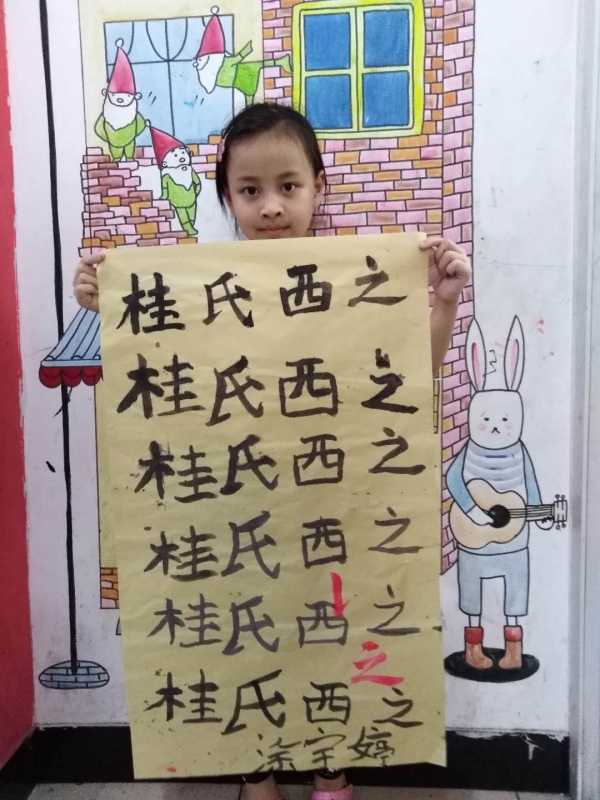 桂氏西之
桂氏西之
桂氏西之
桂氏西之
桂氏西之
之
桂氏西之
涂宇婷